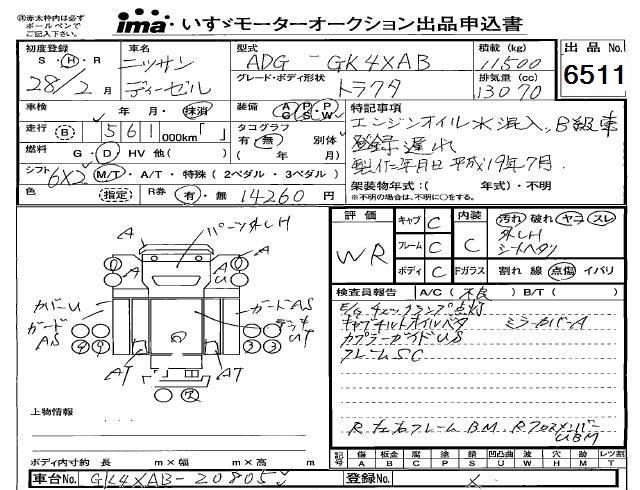 ㊟赤太枠内は必ず
ボールペンで
ご記入下さい。
ima いすゞモーターオークション出品申込書
初度登録 車名 型式 積載(kg)
S・H・R ニッサン ADG - GK4XAB 11500
28/2月 ディーゼル グレード・ボディ形状 排気量(cc)
トラクタ 13070
出品No.
6511
車検 年 月・抹消 装備 A/C P/S P/W 特記事項
エンジンオイル水混入、B級車
走行 B 561 000km「 」 タコグラフ 有・無 別体 登録遅れ
燃料 G・D HV 他( ) ( 年 月) 製作年月日 平成19年7月
シフト 6X2 M/T・A/T・特殊(2ペダル・3ペダル) 架装物年式:( 年式)・不明
※不明の場合は、不明に○をする。
色 指定 R券 有・無 14260円
パーツ外しH
A
A
A
U
カバーU
ガードAS
ガード
AS
デッキ
UT
AT
AT
評価 キャブ C 内装 汚れ 破れ ヤコ スレ
WR フレーム C C 外しH
シートヘタリ
ボディ C Fガラス 割れ 線 点傷 イバリ
検査員報告 A/C(不良) B/T( )
E/Gチェックランプ点灯
キャブチルトオイルベタ ミラーカバーA
カプラーガイドUS
フレームSC
R左右フレームBM RクロスメンバーUBM
上物情報
ボディ内寸約 長 m×幅 m×高 m
記号 傷 板金 腐 塗 錆 凹凸曲 波 穴 色 磨 レツ割
A B C P S U W H M T
車台No. GK4XAB-20805 登録No. ×